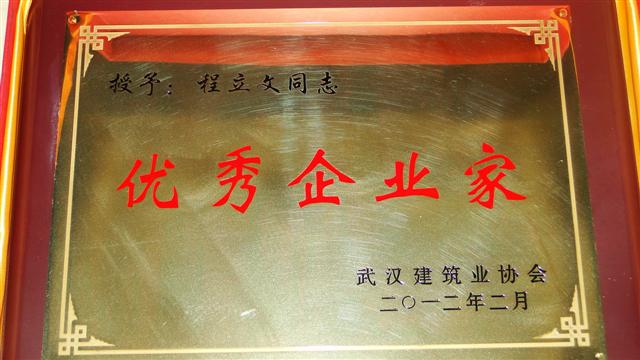 授予：程立文同志
优秀企业家
武汉建筑业协会
二〇一二年二月